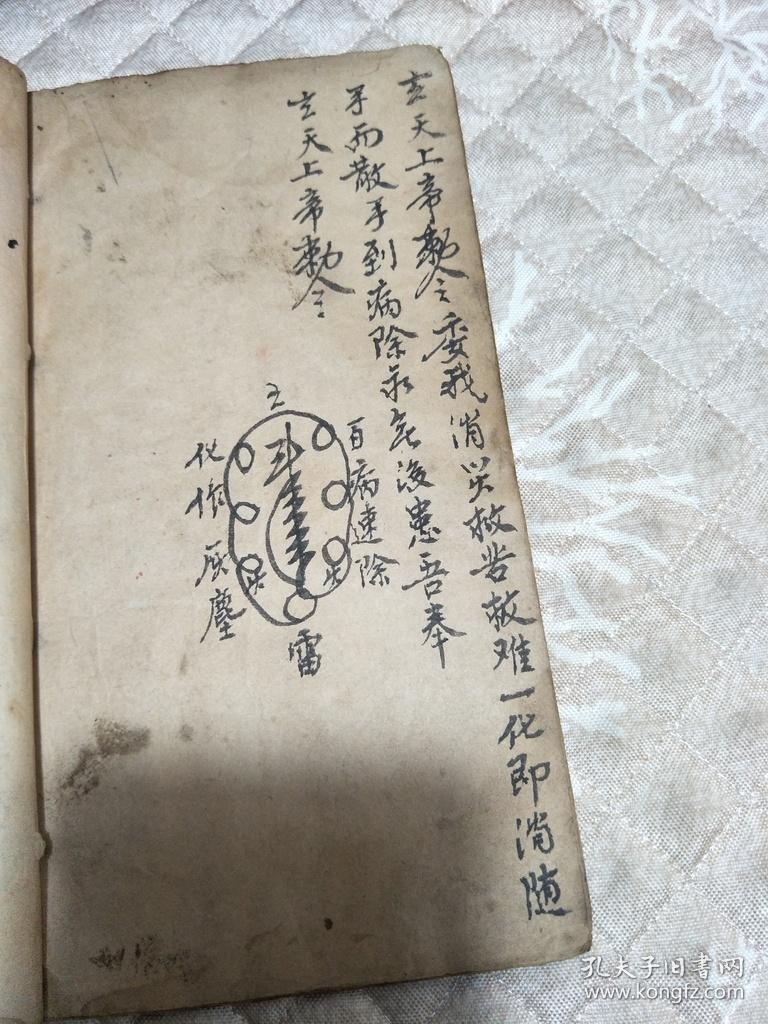 玄天上帝勅令委我消災救苦救难一化即消随
手而散手到病除永无後患吾奉
玄天上帝勅令
百病速除
雷
化作灰塵
孔夫子旧书网
www.kongfz.com